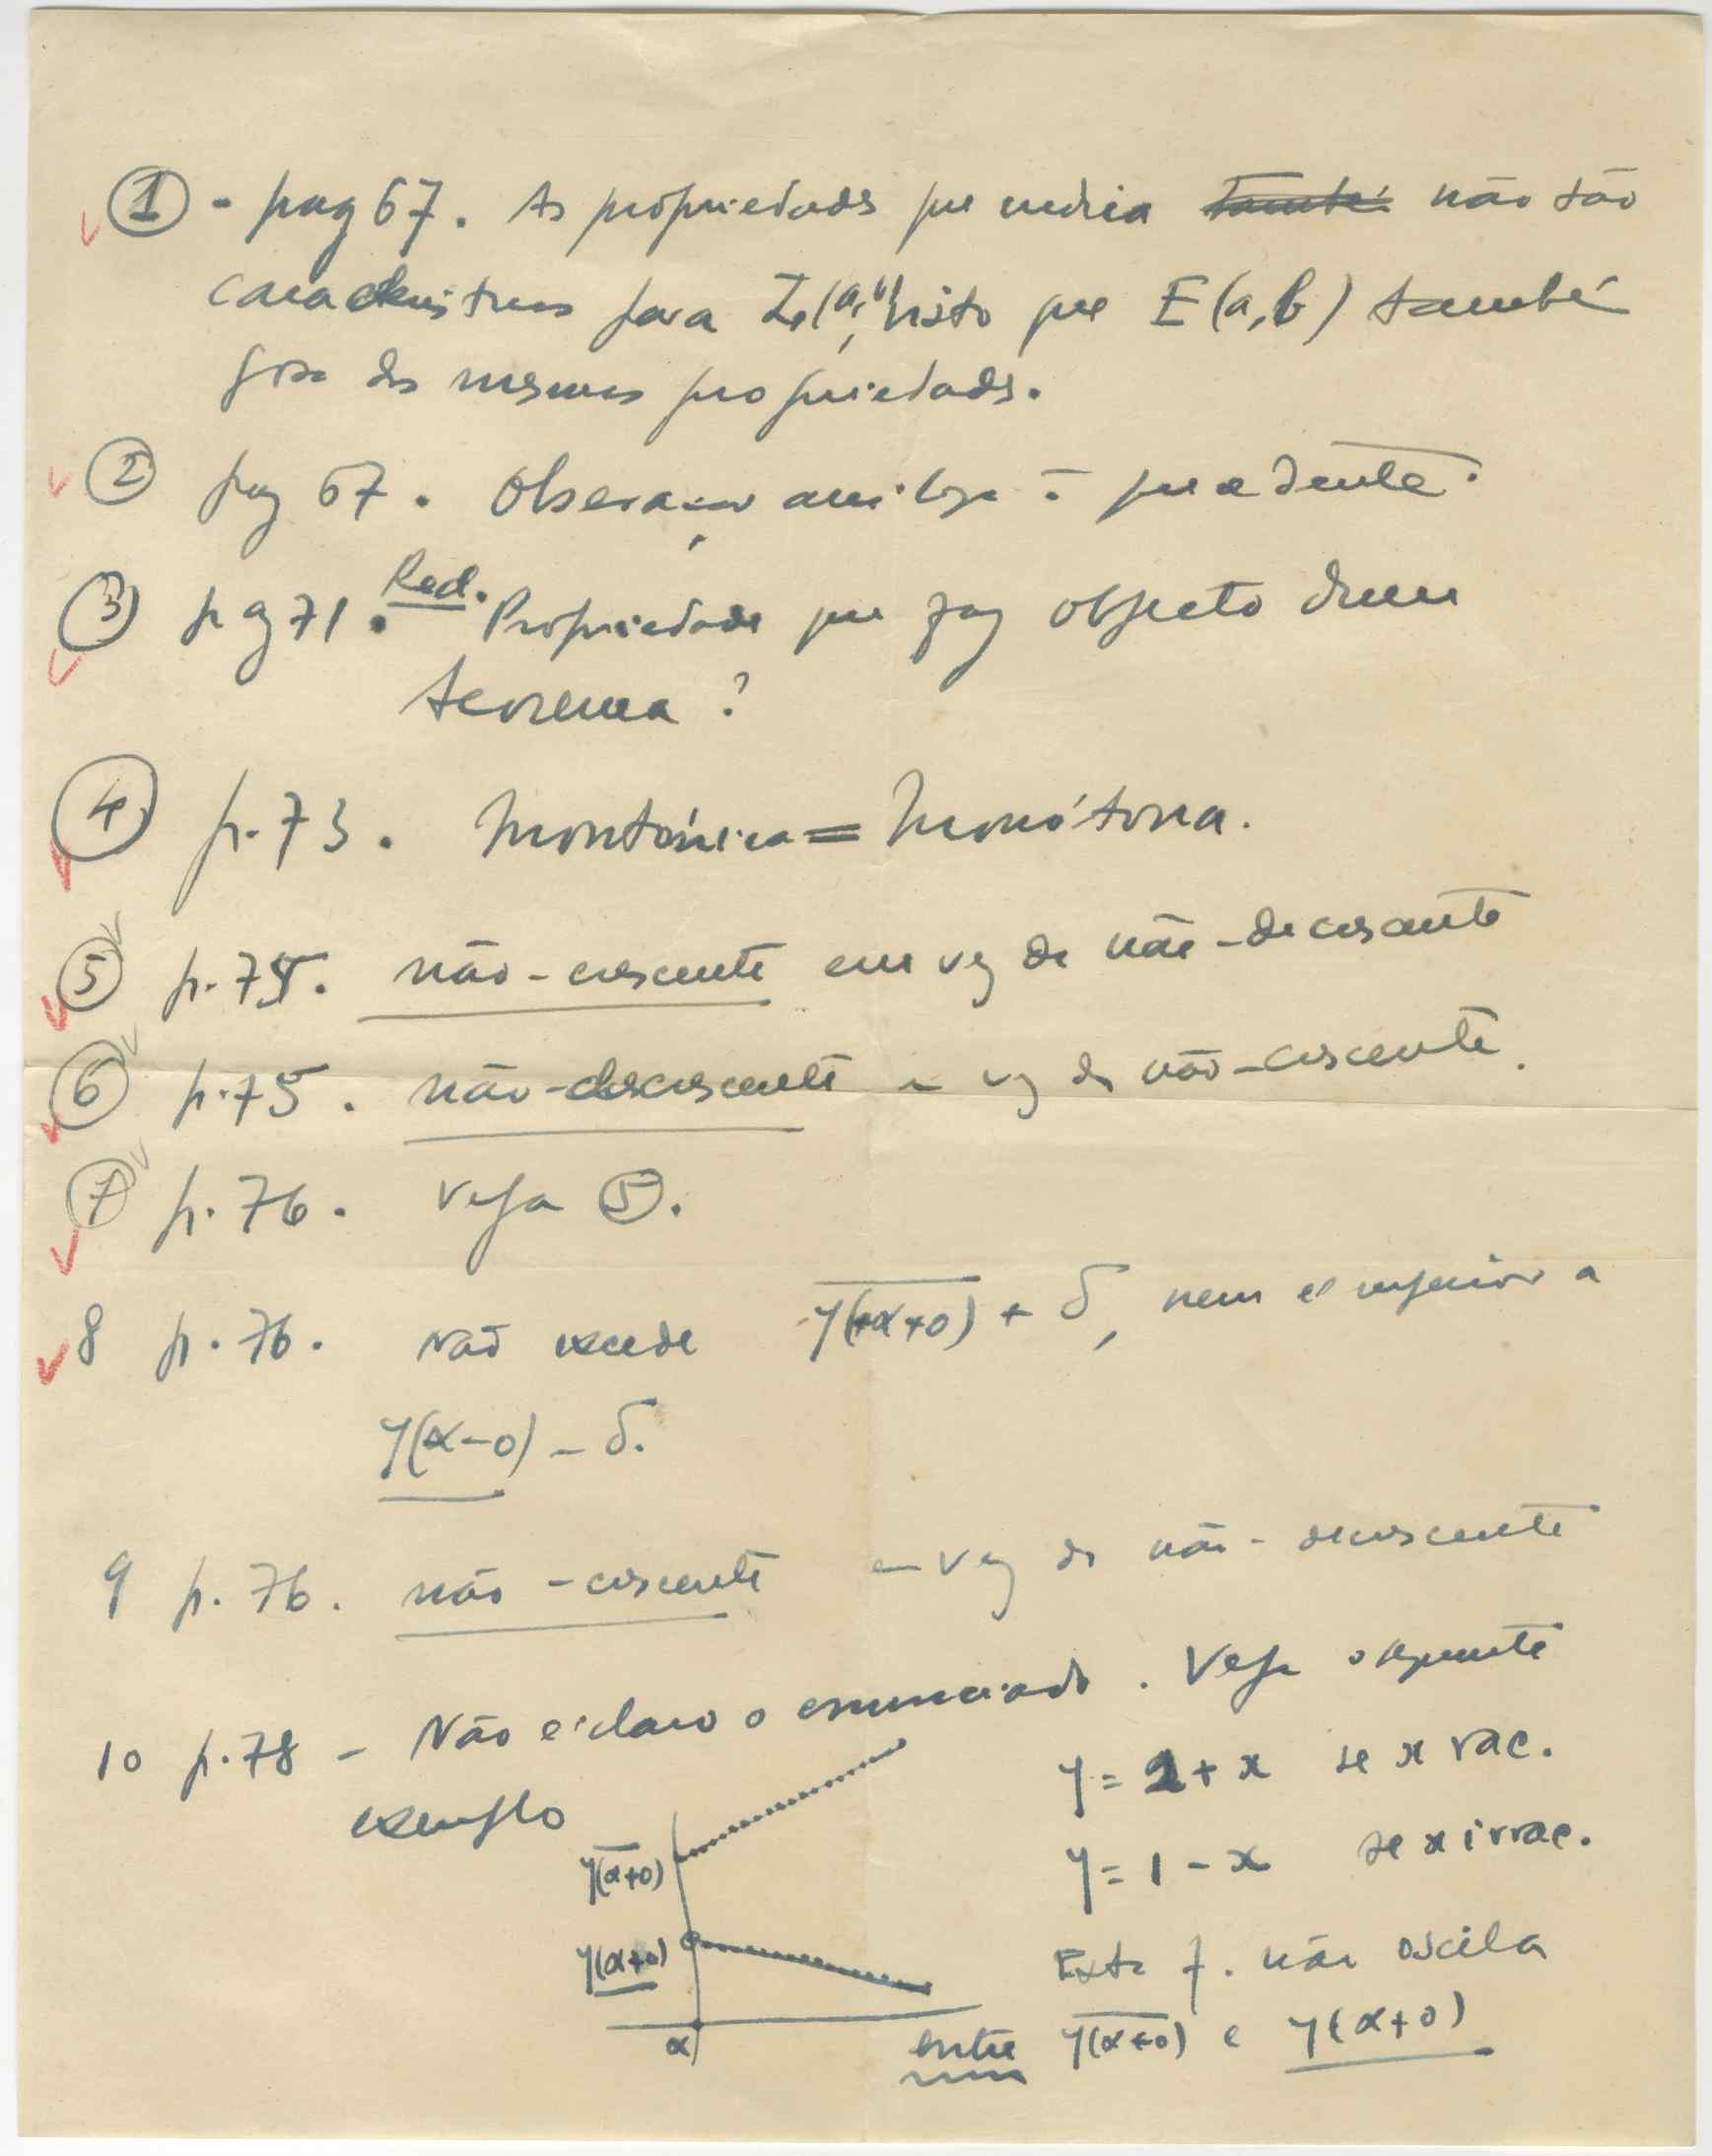 ① - pag 67. As propriedades que indica ~~também~~ não são
características para I(a,b) visto que E(a,b) também
gosa das mesmas propriedades.
② pag 67. Observação análoga à precedente.
③ pg 71. Red. Propriedade que faz objecto dum
teorema?
④ p. 73. Montónica = Monótona.
⑤ p. 75. não-crescente em vez de não-decrescente
⑥ p. 75. não-decrescente em vez de não-crescente.
⑦ p. 76. Veja ⑤.
8 p. 76. Não excede y̅(̅α̅+̅0̅)̅ + δ, nem é inferior a
y̲(̲α̲-̲0̲)̲ - δ.
9 p. 76. não-crescente em vez de não-decrescente
10 p. 78 - Não é claro o enunciado. Veja o seguinte
exemplo
y = 2 + x se x rac.
y̅(̅α̅+̅0̅)̅
y = 1 - x se x irrac.
y̲(̲α̲+̲0̲)̲
Esta f. não oscila
α
entre y̅(̅α̅+̅0̅)̅ e y̲(̲α̲+̲0̲)̲